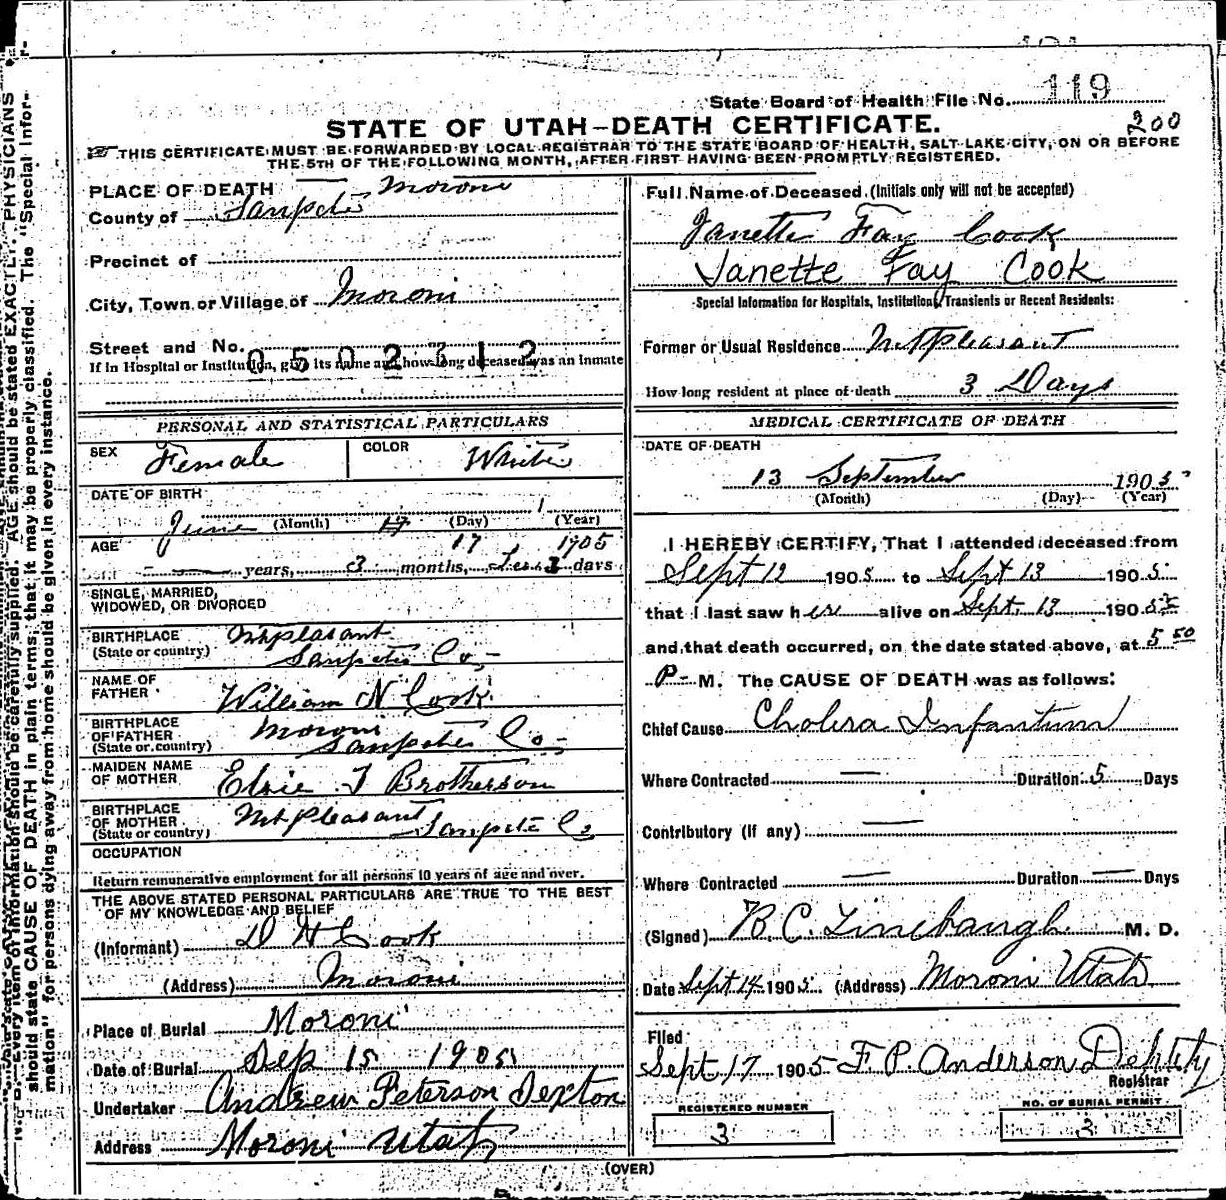 119
State Board of Health File No.
STATE OF UTAH-DEATH CERTIFICATE.
200
THIS CERTIFICATE MUST BE FORWARDED BY LOCAL REGISTRAR TO THE STATE BOARD OF HEALTH, SALT LAKE CITY, ON OR BEFORE
THE 5TH OF THE FOLLOWING MONTH, AFTER FIRST HAVING BEEN PROMPTLY REGISTERED.
PLACE OF DEATH Moroni
County of Sanpete
Precinct of
City, Town or Village of Moroni
Street and No.
0502312
If in Hospital or Institution, give its name and how long deceased was an inmate
PERSONAL AND STATISTICAL PARTICULARS
SEX Female COLOR White
DATE OF BIRTH
June (Month) 17 (Day) (Year)
17 1905
AGE
years, 3 months, days
SINGLE, MARRIED,
WIDOWED, OR DIVORCED
BIRTHPLACE Mtpleasant
(State or country) Sanpete Co,
NAME OF
FATHER William N Cook
BIRTHPLACE
OF FATHER Moroni
(State or country) Sanpete Co
MAIDEN NAME
OF MOTHER Elsie J Brotherson
BIRTHPLACE
OF MOTHER Mt pleasant
(State or country) Sanpete Co
OCCUPATION
Return remunerative employment for all persons 10 years of age and over.
THE ABOVE STATED PERSONAL PARTICULARS ARE TRUE TO THE BEST
OF MY KNOWLEDGE AND BELIEF
(Informant) D H Cook
(Address) Moroni
Place of Burial Moroni
Date of Burial Sep 15 1905
Undertaker Andrew Peterson Sexton
Address Moroni Utah
Full Name of Deceased (Initials only will not be accepted)
Janette Fay Cook
Janette Fay Cook
Special Information for Hospitals, Institutions, Transients or Recent Residents:
Former or Usual Residence Mtpleasant
How long resident at place of death 3 Days
MEDICAL CERTIFICATE OF DEATH
DATE OF DEATH
13 September 1905
(Month) (Day) (Year)
I HEREBY CERTIFY, That I attended deceased from
Sept 12 1905 to Sept 13 1905
that I last saw her alive on Sept. 13 1905
and that death occurred, on the date stated above, at 5 50
P M. The CAUSE OF DEATH was as follows:
Chief Cause Cholera Infantum
Where Contracted — Duration 5 Days
Contributory (if any) —
Where Contracted — Duration — Days
(Signed) B. C. Linebaugh M. D.
Date Sept 14 1905 (Address) Moroni Utah
Filed
Sept 17 1905 F. P. Anderson Dehtity
Registrar
REGISTERED NUMBER
3
NO. OF BURIAL PERMIT
3
(OVER)
Every item of information should be carefully supplied. AGE should be stated EXACTLY. PHYSICIANS
should state CAUSE OF DEATH in plain terms, that it may be properly classified. The "Special Infor-
mation" for persons dying away from home should be given in every instance.